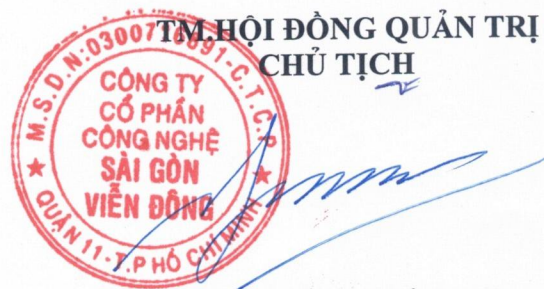 TM.HỘI ĐỒNG QUẢN TRỊ
CHỦ TỊCH
CÔNG TY
CỔ PHẦN
CÔNG NGHỆ
SÀI GÒN
VIỄN ĐÔNG
QUẬN 11-T.P HỒ CHÍ MINH